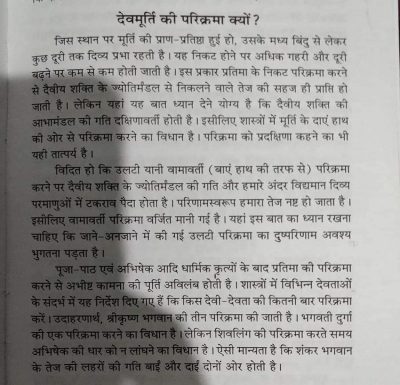 देवमूर्ति की परिक्रमा क्यों ?
जिस स्थान पर मूर्ति की प्राण-प्रतिष्ठा हुई हो, उसके मध्य बिंदु से लेकर
कुछ दूरी तक दिव्य प्रभा रहती है। यह निकट होने पर अधिक गहरी और दूरी
बढ़ने पर कम से कम होती जाती है। इस प्रकार प्रतिमा के निकट परिक्रमा करने
से दैवीय शक्ति के ज्योतिर्मंडल से निकलने वाले तेज की सहज ही प्राप्ति हो
जाती है। लेकिन यहां यह बात ध्यान देने योग्य है कि दैवीय शक्ति की
आभामंडल की गति दक्षिणावर्ती होती है। इसीलिए शास्त्रों में मूर्ति के दाएं हाथ
की ओर से परिक्रमा करने का विधान है। परिक्रमा को प्रदक्षिणा कहने का भी
यही तात्पर्य है।
विदित हो कि उलटी यानी वामावर्ती (बाएं हाथ की तरफ से) परिक्रमा
करने पर दैवीय शक्ति के ज्योतिर्मंडल की गति और हमारे अंदर विद्यमान दिव्य
परमाणुओं में टकराव पैदा होता है। परिणामस्वरूप हमारा तेज नष्ट हो जाता है।
इसीलिए वामावर्ती परिक्रमा वर्जित मानी गई है। यहां इस बात का ध्यान रखना
चाहिए कि जाने-अनजाने में की गई उलटी परिक्रमा का दुष्परिणाम अवश्य
भुगतना पड़ता है।
पूजा-पाठ एवं अभिषेक आदि धार्मिक कृत्यों के बाद प्रतिमा की परिक्रमा
करने से अभीष्ट कामना की पूर्ति अविलंब होती है। शास्त्रों में विभिन्न देवताओं
के संदर्भ में यह निर्देश दिए गए हैं कि किस देवी-देवता की कितनी बार परिक्रमा
करें। उदाहरणार्थ, श्रीकृष्ण भगवान की तीन परिक्रमा की जाती है। भगवती दुर्गा
की एक परिक्रमा करने का विधान है। लेकिन शिवलिंग की परिक्रमा करते समय
अभिषेक की धार को न लांघने का विधान है। ऐसी मान्यता है कि शंकर भगवान
के तेज की लहरों की गति बाईं और दाईं दोनों ओर होती है।